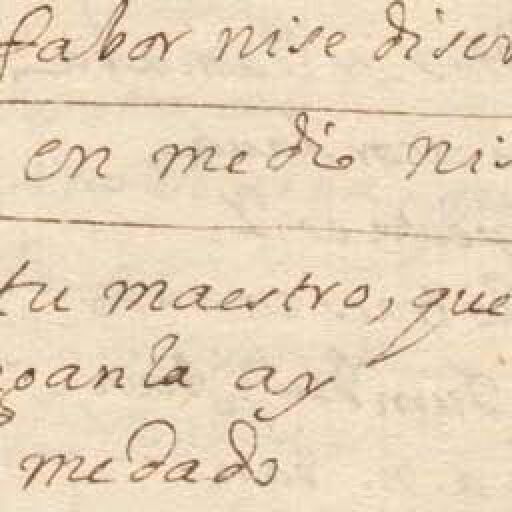 fabor nise diser
en medio nis
tu maestro, que
goanla ay
me dado